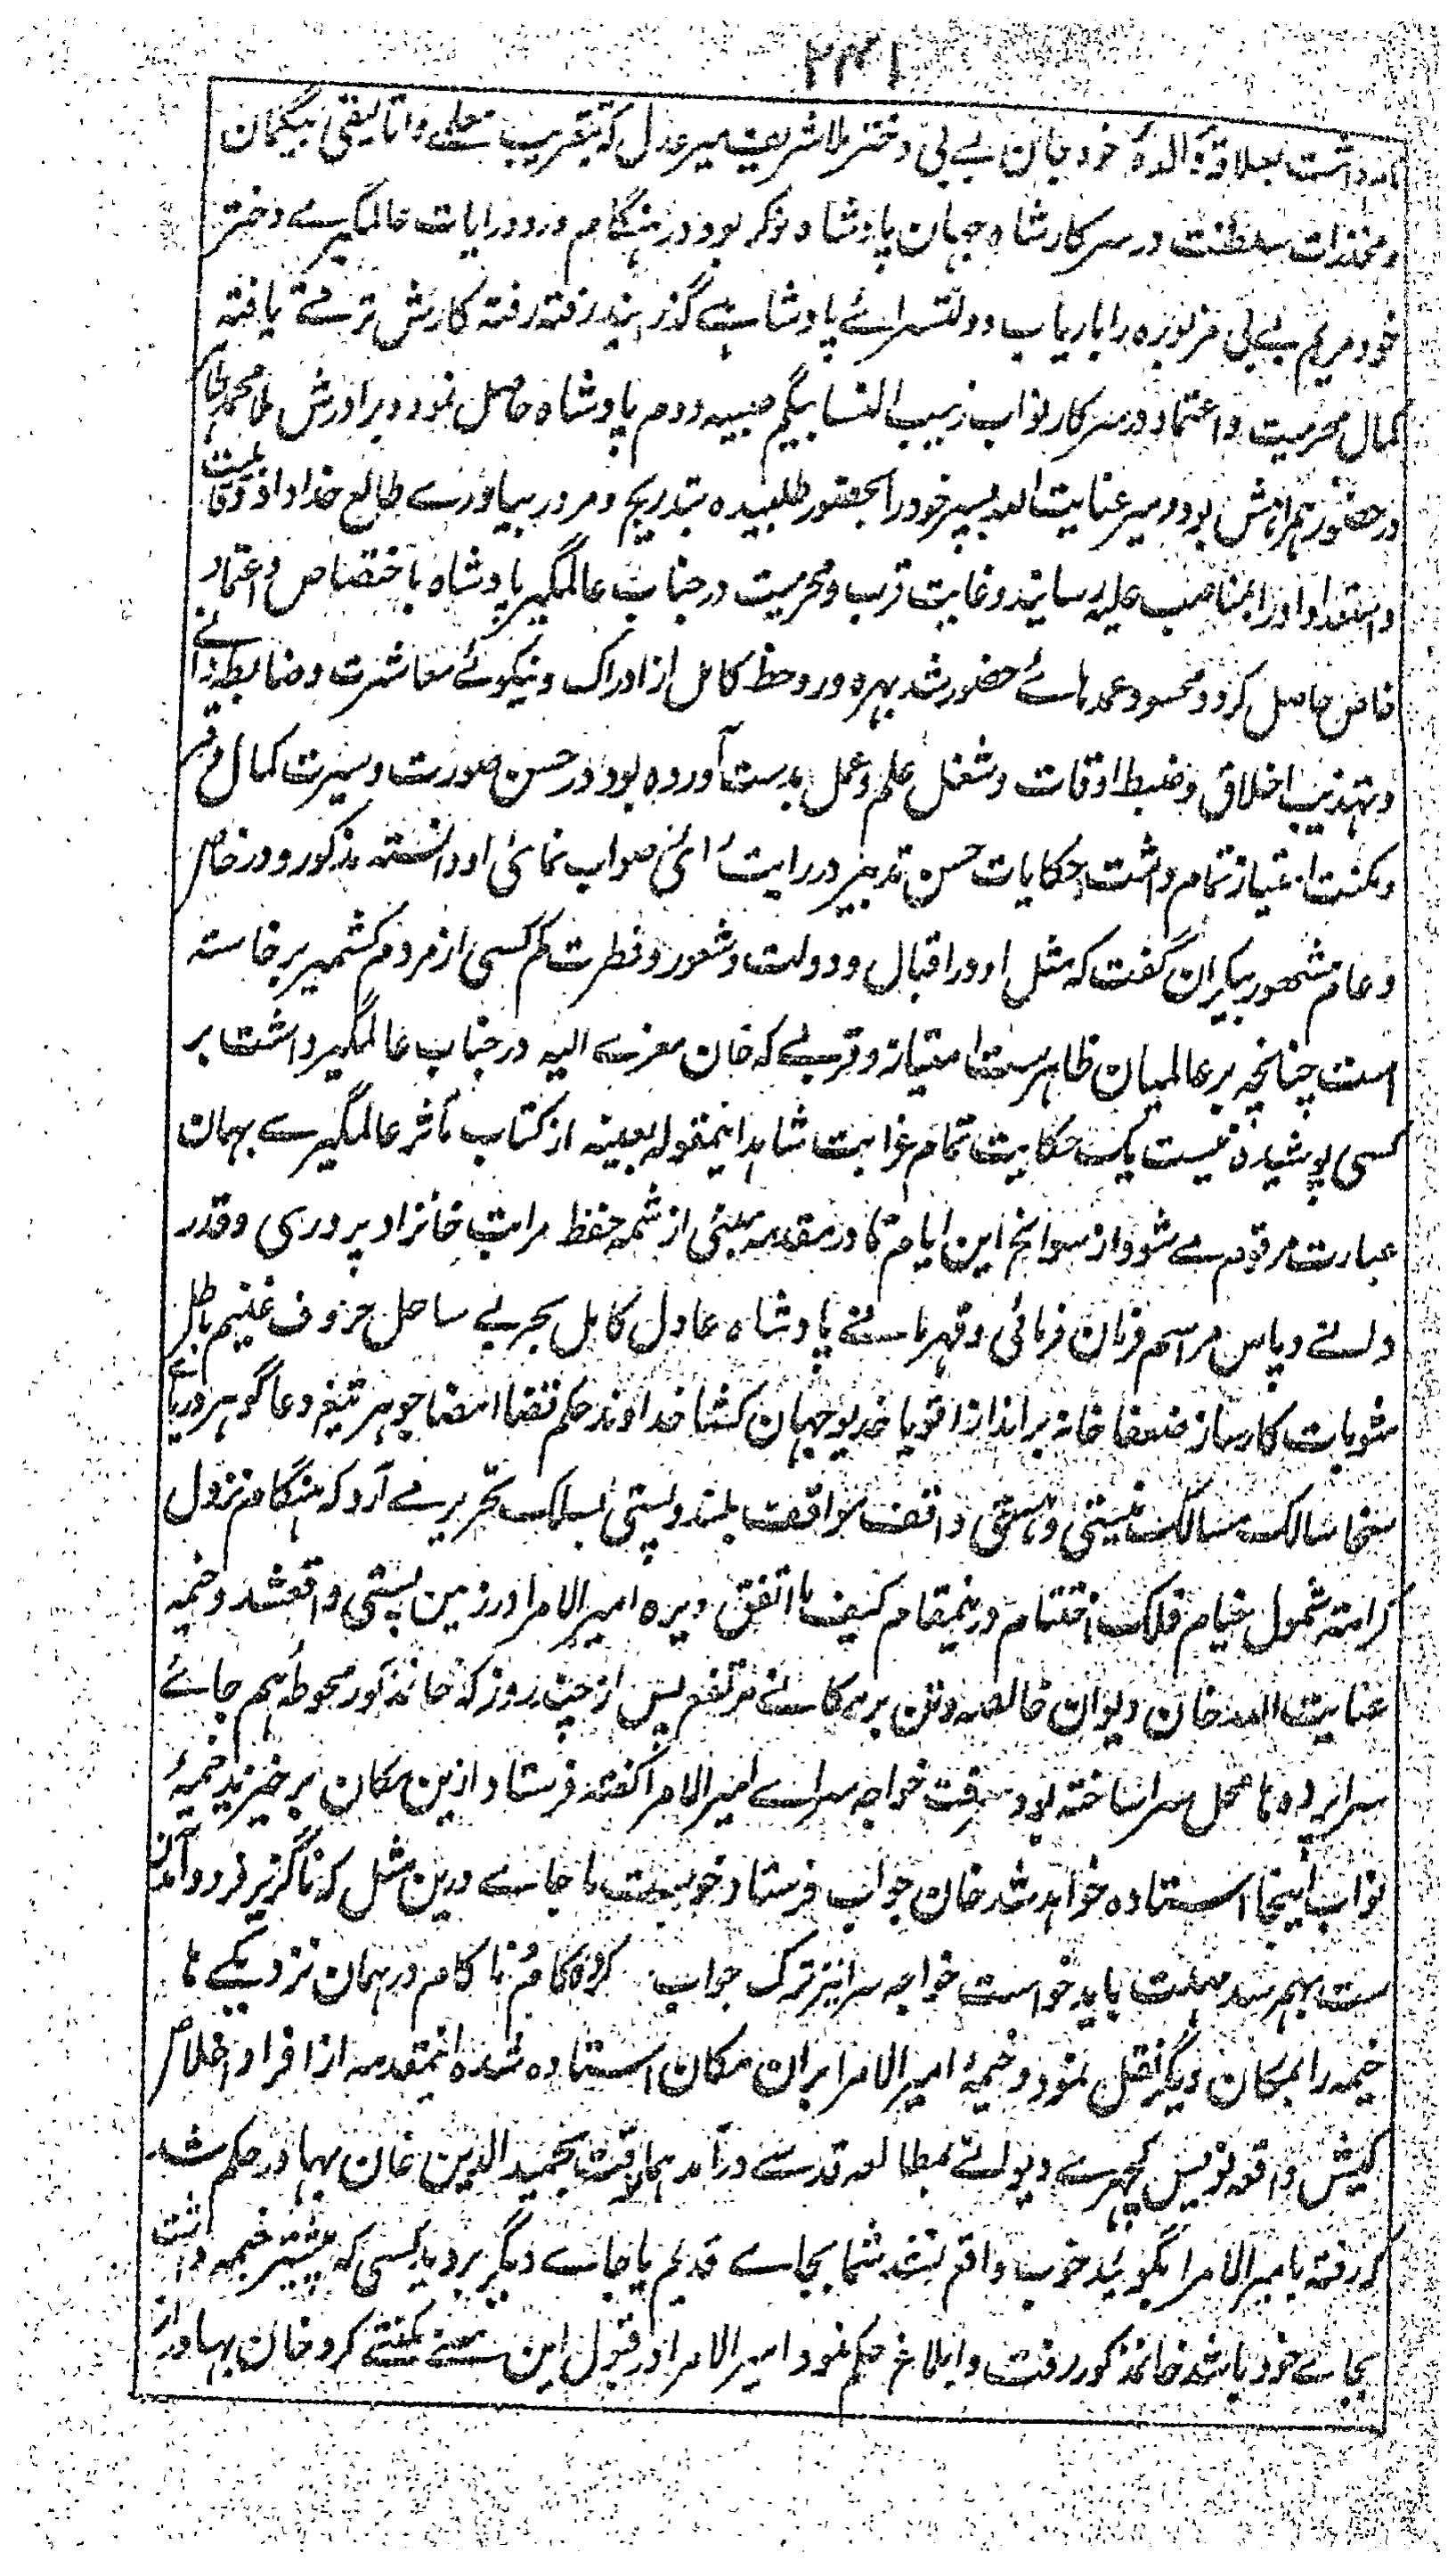 ۲۴۱
نداشت بعلاقۀ والدۀ خود جان بے بی دختر ملا شریف میر عدل که بتقریب معلمے و اتالیقی بیگمان
و مخدرات سلطنت در سرکار شاه جہان پادشاه نوکر بود در ہنگام ورود رایات عالمگیرے دختر
خود مریم بے بی مزبوره را باریاب دولتسرائے پادشاہے گذرانید رفته رفته کارش ترقے یافته
کمال محرمیت و اعتماد در سرکار نواب زیب النسا بیگم صبیه دوم پادشاه حاصل نمود و برادرش ملا محمد طاہر
در حضور ہمراہش بود و میر عنایت الله پسر خود را بحضور طلبیده بتدریج و مرور بیاورے طالع خداداد و قابلیت
و استعداد او را بمناصب علیه رسانید و غایت قرب و محرمیت در جناب عالمگیر پادشاه باختصاص و اعتماد
خاص حاصل کرد و محسود عمدہائے حضور شد بہره ور و حظ کامل از ادراک و نیکوئے معاشرت و ضابطه دانے
و تہذیب اخلاق و ضبط اوقات و شغل علم و عمل بدست آورده بود در حسن صورت و سیرت کمال وقر
و مکنت امتیاز تمام داشت حکایات حسن تدبیر و رایت رائ صواب نمائ او در السنه مذکور و در خاص
و عام مشہور بیکران گفت که مثل او در اقبال و دولت و شعور و فطرت کم کسی از مردم کشمیر برخاسته
است چنانچه بر عالمیان ظاہرست امتیاز و قربے که خان معزے الیه در جناب عالمگیر داشت بر
کسی پوشیده نیست یک حکایت تمام غرابت شاہد اینمقوله بعینه از کتاب مآثر عالمگیرے بہمان
عبارت مرقوم مے شود از سوانح این ایام تا در مقدمه مبنی از شمه حفظ مراتب خانزاد پروری و قدر
دانے و پاس مراسم فرمان فرمائی و قہرمانے پادشاه عادل کامل بحر بے ساحل حروف غنیم باطل
مثوبات کارساز ضعفا خانه برانداز اقویا خدیو جہان کشا خداوند حکم قضا امضا جوہر تیغ دعا گوہر دریائے
سخا سالک مسالک نیستی و ہستی واقف مواقف بلند و پستی بسلک تحریر مے آرد که ہنگام نزول
کرامت شمول خیام فلک اختتام درینمقام کیف ما اتفق دیره امیر الامرا در زمین پستی واقعشد و خیمه
عنایت الله خان دیوان خالصه و تن بر مکانے مرتفع پس از چند روز که خانمذکور محوطه ہم جائے
سراپرده ہا محل سرا ساخته بود بوقت خواجه سراے امیر الامرا گفته فرستاد ازین مکان برخیزید خیمۂ
نواب اینجا استاده خواہد شد خان جواب فرستاد خوبست تا جاے درین مثل که ناگزیر فرود آمدن
ست بہم رسد مہلت باید خواست خواجه سرا نیز ترک جواب کرده کام ناکام در ہمان نزدیکے ہا
خیمه را بمکان دیگر نقل نمود و خیمۂ امیر الامرا بران مکان استاده شده اینمقدمه از افراد اخلاص
کیش واقعه نویس کچہرے دیوانے بمطالعه قدسے درآمد ہمانوقت بحمید الدین خان بہادر حکم شد
که رفته بامیر الامرا بگوئید خوب واقع نشد شما بجاے قدیم یا جاے دیگر بروید کسی که پیشتر خیمه داشت
بجاے خود باشد خانمذکور رفت و ابلاغ حکم نمود امیر الامرا در قبول این معنے مکثے کرد خان بہادر از